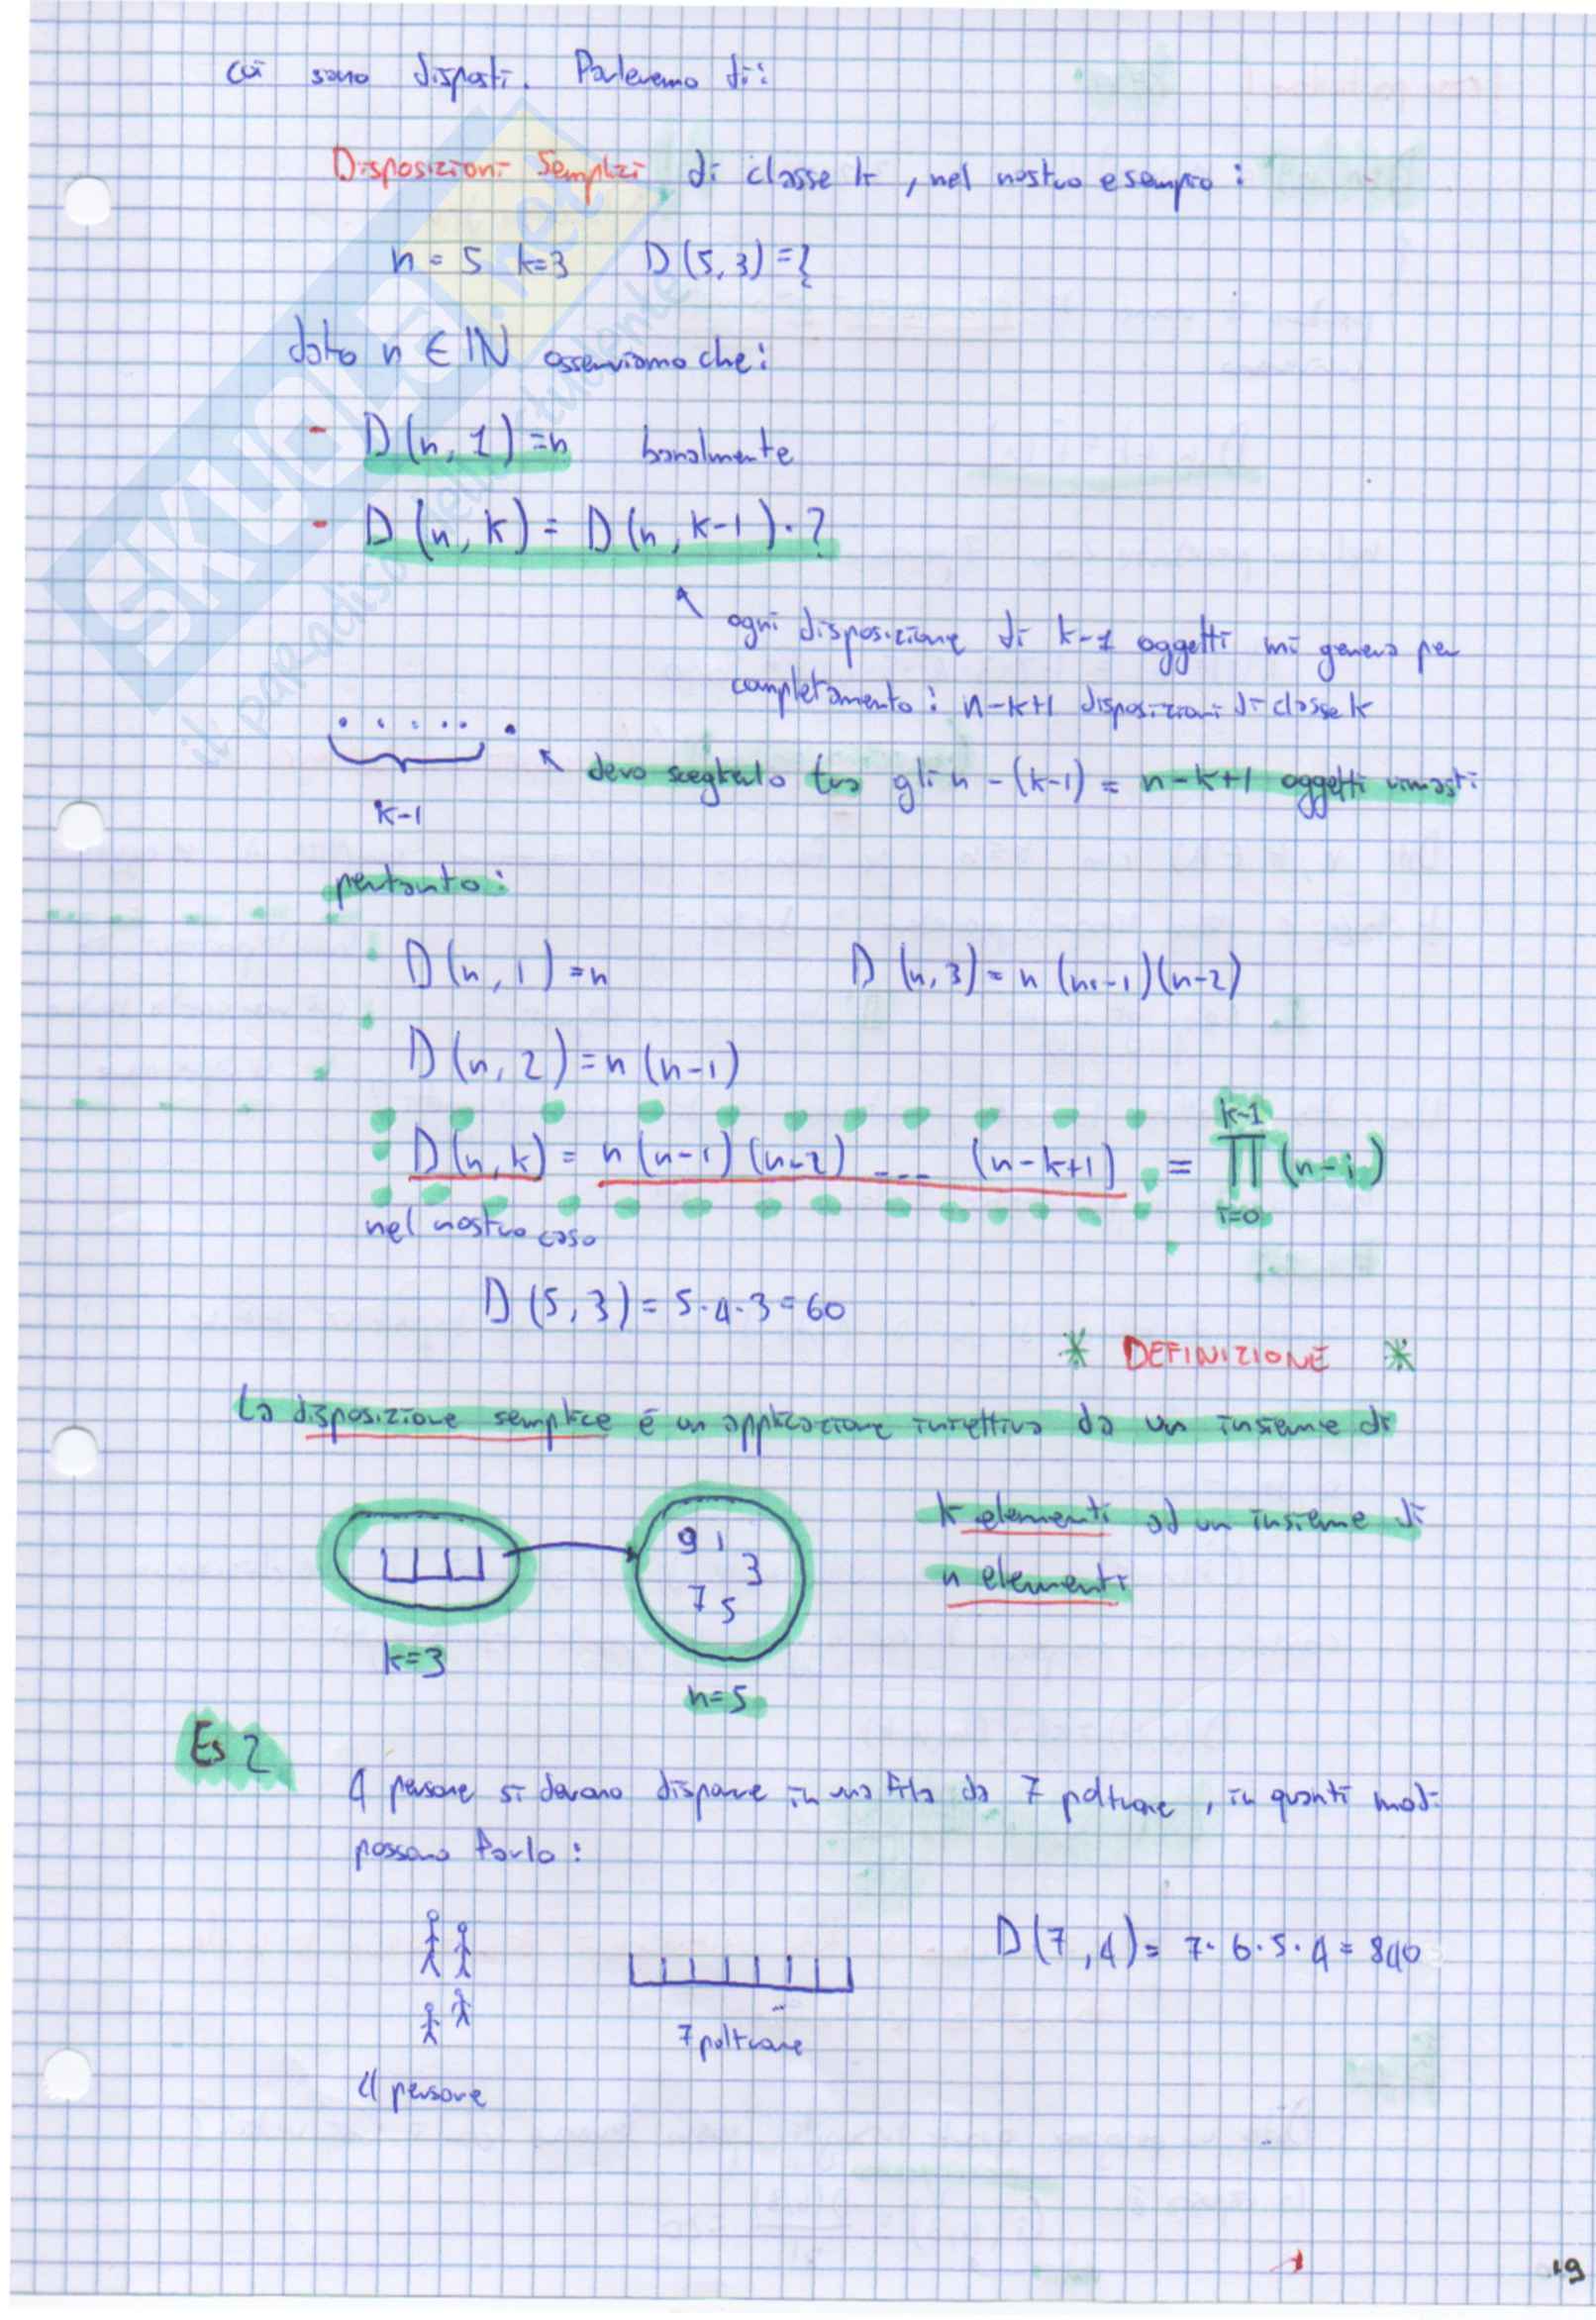 cui sono disposti. Parleremo di:
Disposizioni Semplici di classe k, nel nostro esempio:
n = 5 k=3 D(5,3)=?
dato n ∈ IN osserviamo che:
- D(n, 1)=n banalmente
- D(n, k) = D(n, k-1)·?
ogni disposizione di k-1 oggetti mi genera per
completamento: n-k+1 disposizioni di classe k
devo sceglierlo tra gli n-(k-1) = n-k+1 oggetti rimasti
k-1
pertanto:
D(n, 1)=n D(n,3)= n(n-1)(n-2)
D(n, 2)=n(n-1)
D(n,k) = n(n-1)(n-2) --- (n-k+1) = ∏(n-i)
k-1
i=0
nel nostro caso
D(5,3)= 5·4·3=60
* DEFINIZIONE *
La disposizione semplice è un applicazione iniettiva da un insieme di
k elementi ad un insieme di
n elementi
9 1
3
7 5
k=3
n=5
Es 2
4 persone si devono disporre in una fila da 7 poltrone, in quanti modi
possono farlo:
D(7,4)= 7·6·5·4=840
7 poltrone
4 persone
19
SKUOLA.net
il paradiso dello studente